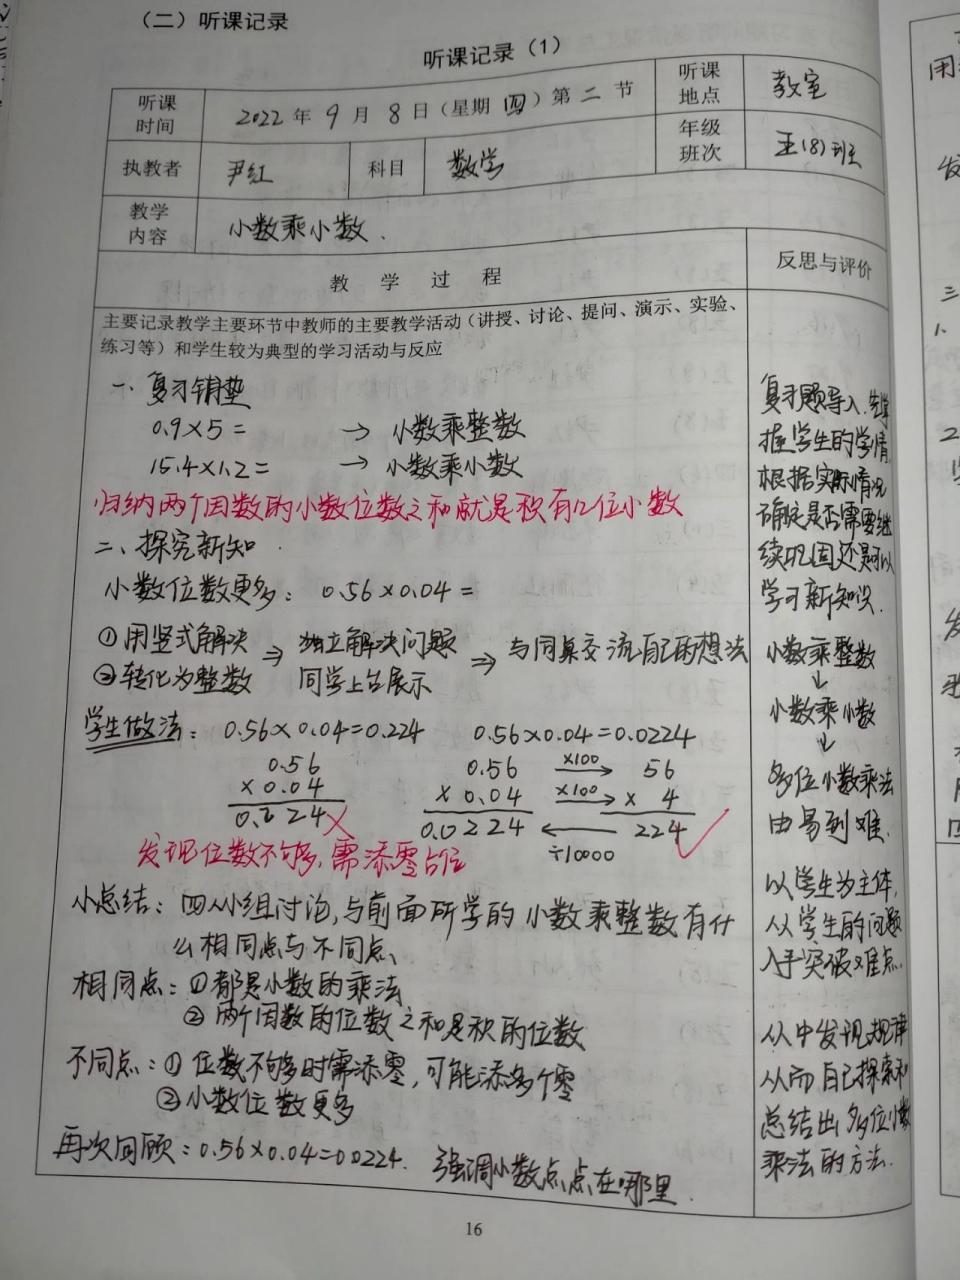 （二）听课记录
听课记录（1）
听课时间 2022年9月8日（星期四）第二节 听课地点 教室
执教者 尹红 科目 数学 年级班次 五(8)班
教学内容 小数乘小数.
教 学 过 程 反思与评价
主要记录教学主要环节中教师的主要教学活动（讲授、讨论、提问、演示、实验、
练习等）和学生较为典型的学习活动与反应
一、复习铺垫
0.9×5= → 小数乘整数
15.4×1.2= → 小数乘小数
归纳两个因数的小数位数之和就是积有几位小数
二、探究新知.
小数位数更多：0.56×0.04=
①用竖式解决 ⇒ 独立解决问题 ⇒ 与同桌交流自己的想法
②转化为整数 同学上台展示
学生做法：0.56×0.04=0.224 0.56×0.04=0.0224
0.56 0.56 ×100 → 56
×0.04 ×0.04 ×100 → × 4
0.224 × 0.0224 ← 224 ✓
÷10000
发现位数不够多,需添零占位
小总结：四人小组讨论,与前面所学的小数乘整数有什
么相同点与不同点、
相同点：①都是小数的乘法
②两个因数的位数之和是积的位数
不同点：①位数不够多时需添零,可能添多个零
②小数位数更多
再次回顾：0.56×0.04=0.0224. 强调小数点点在哪里.
复习题导入,先掌
握学生的学情,
根据实际情况
确定是否需要继
续巩固还是可以
学习新知识.
小数乘整数
↓
小数乘小数
↓
多位小数乘法
由易到难.
以学生为主体,
从学生的问题
入手突破难点.
从中发现规律
从而自己探索和
总结出多位小数
乘法的方法.
16